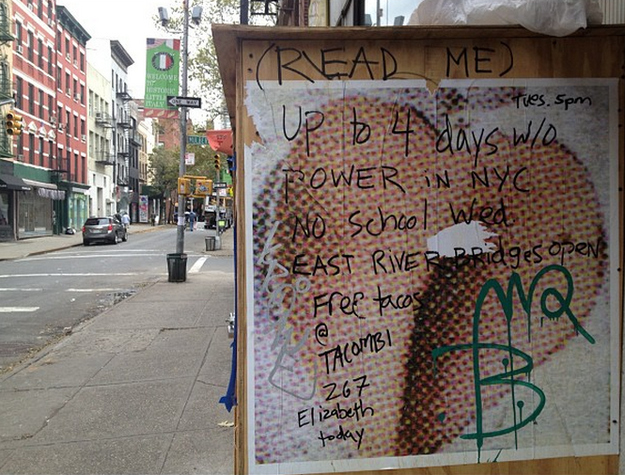 (READ ME)
Tues. 5pm
Up to 4 days w/o
POWER in NYC
NO School Wed.
EAST RIVER BRidges open
Free tacos
@
TACOMBI
267
Elizabeth
today
WELCOME
TO
HISTORIC
LITTLE
ITALY